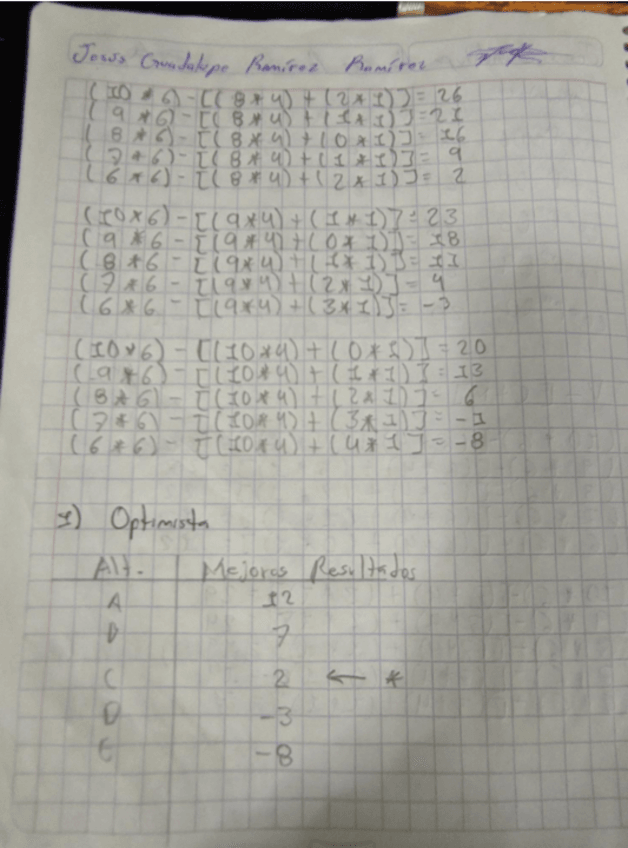 Jesus Guadalupe Ramírez Ramírez
(10*6)-[(8*4)+(2*1)]=26
(9*6)-[(8*4)+(1*1)]=21
(8*6)-[(8*4)+(0*1)]=16
(7*6)-[(8*4)+(1*1)]=9
(6*6)-[(8*4)+(2*1)]=2
(10*6)-[(9*4)+(1*1)]=23
(9*6-[(9*4)+(0*1)]=18
(8*6-[(9*4)+(1*1)]=11
(7*6-[(9*4)+(2*1)]=4
(6*6-[(9*4)+(3*1)]=-3
(10*6)-[(10*4)+(0*1)]=20
(9*6)-[(10*4)+(1*1)]=13
(8*6)-[(10*4)+(2*1)]=6
(7*6)-[(10*4)+(3*1)]=-1
(6*6)-[(10*4)+(4*1]=-8
1) Optimista
Alt. Mejores Resultados
A 12
D 7
C 2 ← *
D -3
E -8